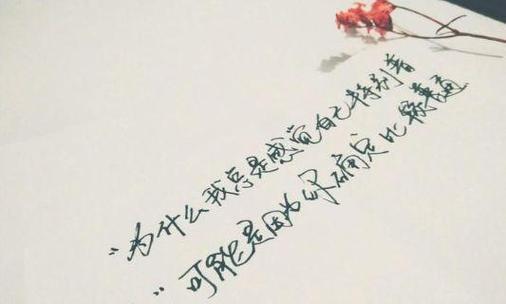 “为什么我总是感觉自己特别普
“可能是因为你确定比较普通